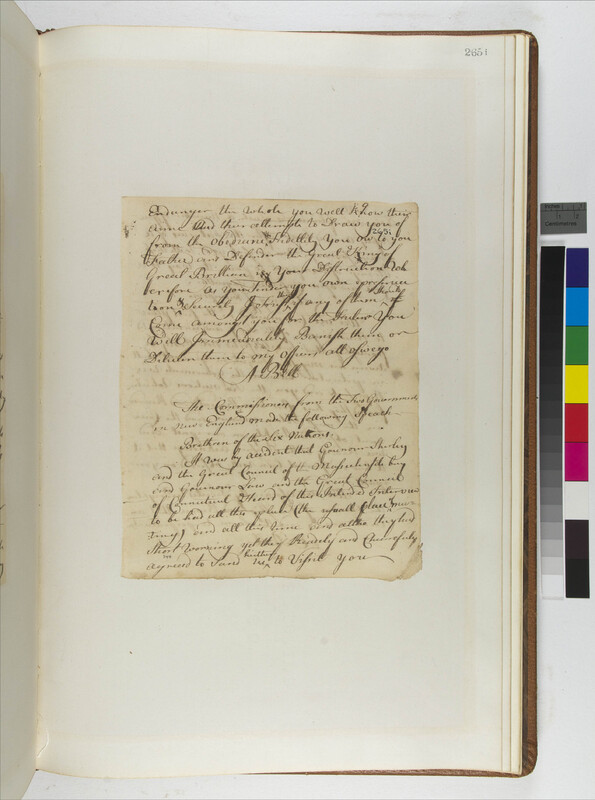 2651
Endanger the whole you well know this
and their attempts to Draw you of
from the Obediunc Fidellity You ow to you
Father and Defender the Great King of
Great Brittian is Your Distruction Wh
erefore as you tender you own
and if any of them
Come amongst you for the futer You
Will Immeniatly Banish them or
Diliuer them to my Officer att Oswego
A Belt
The Commissioners from the two Governments
in New England made the following Speach
Brethren of the Six Nations
It was by accident that Gouenour Shirley
and the Great Council of the Massachusets bay
and Gouenour Law and the Great Council
of Connecticut heard of this Intended Interuew
to be had att this place (the usuall place
ting) and att this time and altho they had
Short worning yet they Readely and Chearefuly
agreed to Sand to Visit you